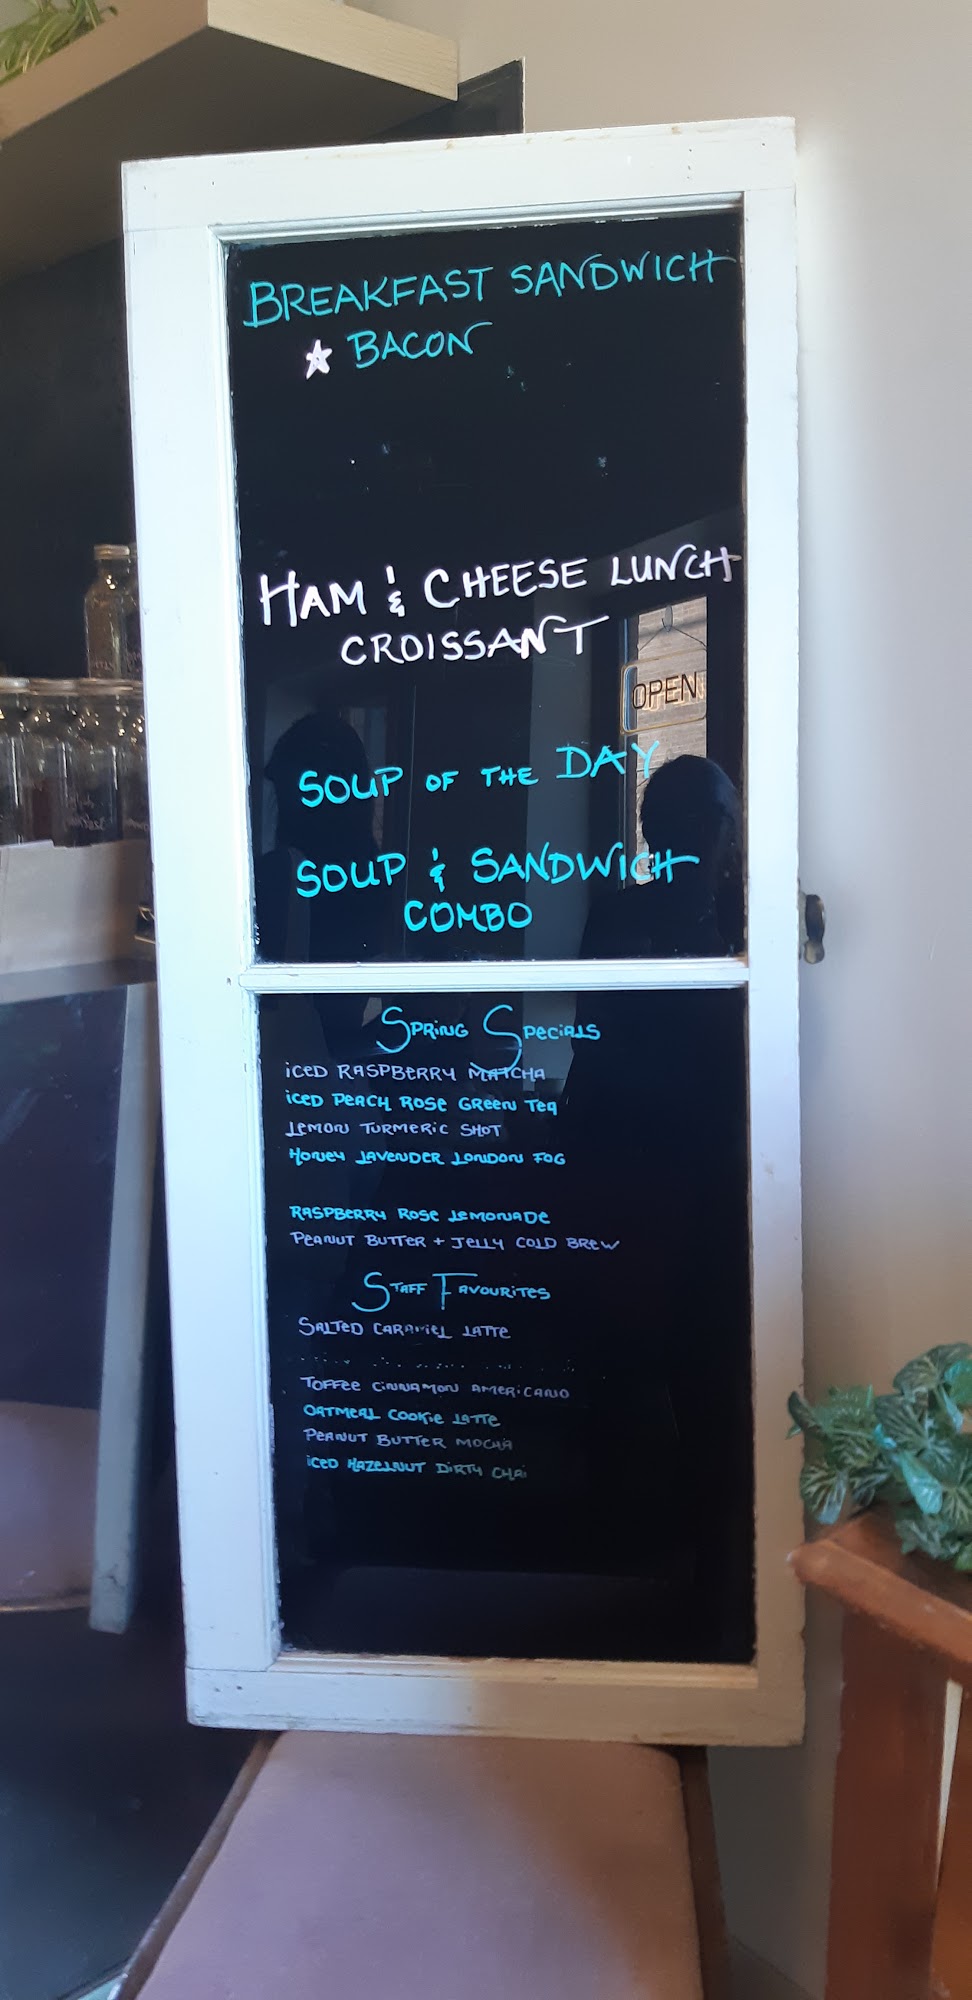 BREAKFAST SANDWICH
☆ BACON
HAM & CHEESE LUNCH
CROISSANT
OPEN
SOUP OF THE DAY
SOUP & SANDWICH
COMBO
SPRING SPECIALS
ICED RASPBERRY MATCHA
ICED PEACH ROSE GREEN TEA
LEMON TURMERIC SHOT
HONEY LAVENDER LONDON FOG
RASPBERRY ROSE LEMONADE
PEANUT BUTTER + JELLY COLD BREW
STAFF FAVOURITES
SALTED CARAMEL LATTE
TOFFEE CINNAMON AMERICANO
OATMEAL COOKIE LATTE
PEANUT BUTTER MOCHA
ICED HAZELNUT DIRTY CHAI